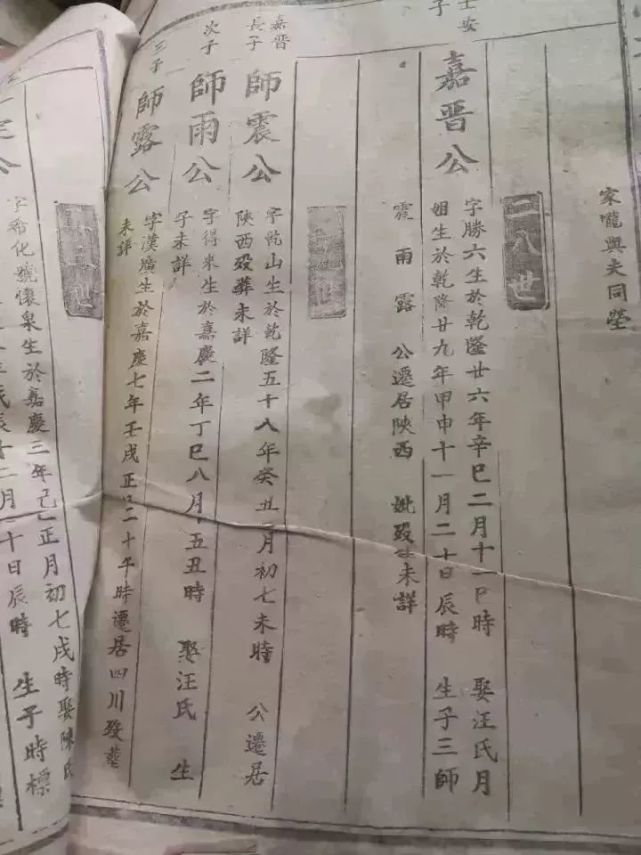 家隴與夫同塋
一八世
嘉晋公
字勝六生於乾隆廿六年辛巳二月十一巳時 娶汪氏月
姐生於乾隆廿九年甲申十一月二十日辰時 生子三師
震雨露 公遷居陝西 妣歿 未詳
嘉晋
長子
師震公
字乾山生於乾隆五十八年癸丑 月初七未時 公遷居
陝西歿葬未詳
次子
師雨公
字得來生於嘉慶二年丁巳八月 五丑時 娶汪氏 生
子未詳
三子
師露公
字漢廣生於嘉慶七年壬戌正 二十午時遷居四川歿葬
未詳
公
字 化號懷泉生於嘉慶三年 正月初七戌時娶陳氏
氏 月 十日辰時 生子時標